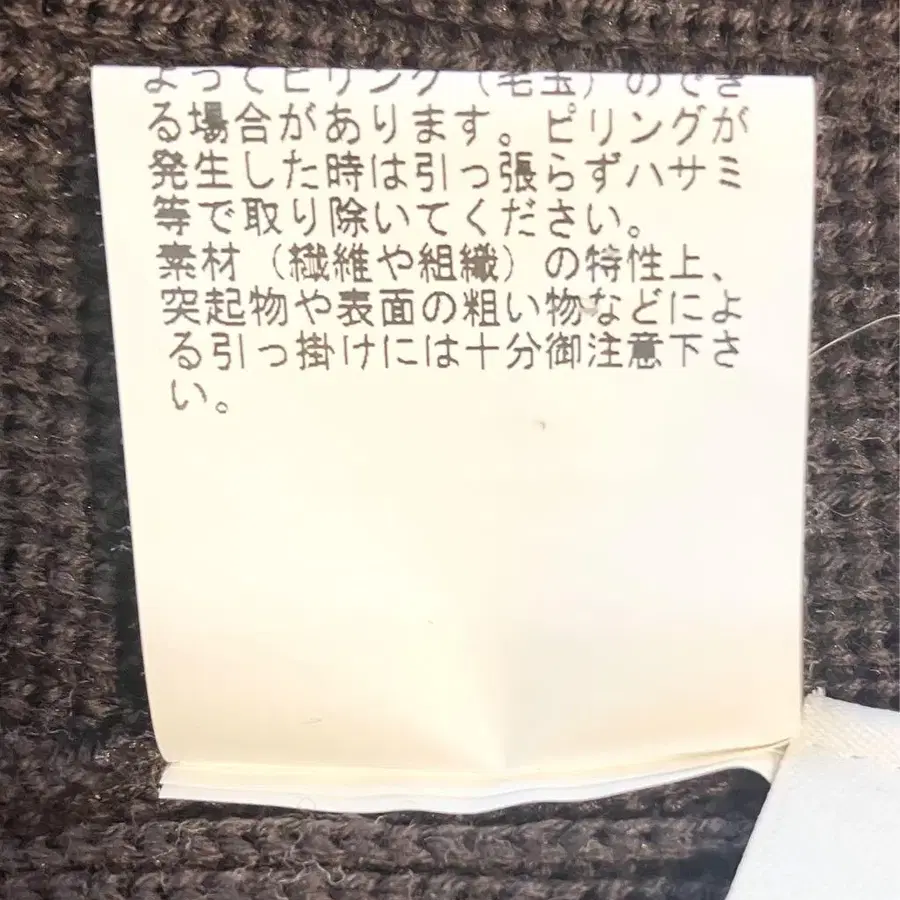 よってピリング（毛玉）のでき
る場合があります。ピリングが
発生した時は引っ張らずハサミ
等で取り除いてください。
素材（繊維や組織）の特性上、
突起物や表面の粗い物などによ
る引っ掛けには十分御注意下さ
い。